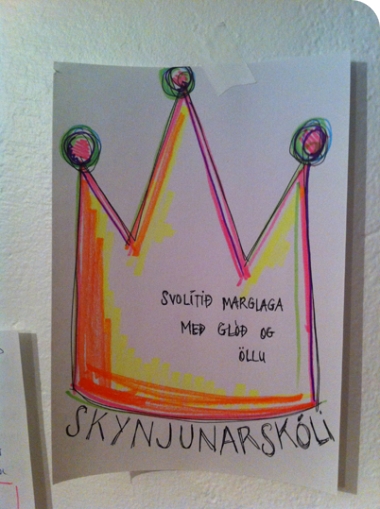 SVOLÍTIÐ MARGLAGA
MEÐ GLÓÐ OG
ÖLLU
SKYNJUNARSKÓLI